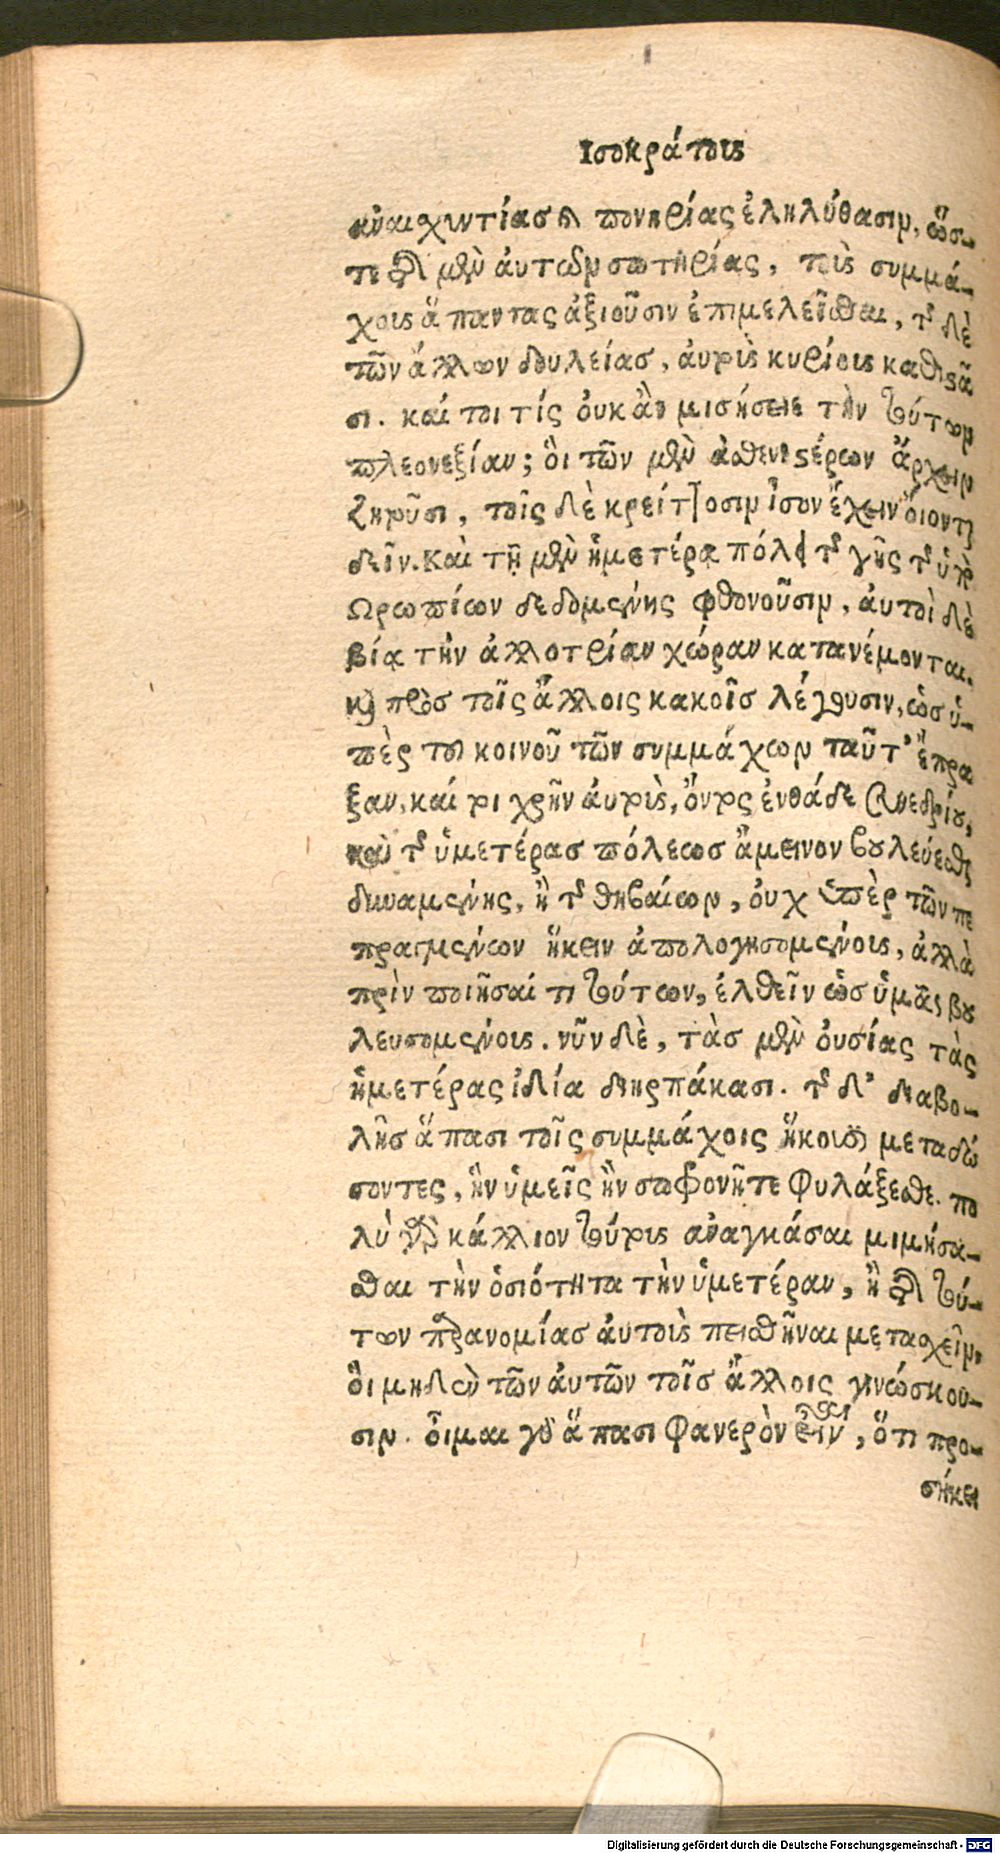 Ισοκράτους
ἀναισχυντίας καὶ πονηρίας ἐληλύθασιν, ὥσ-
τε τῆς μὲν αὑτῶν σωτηρίας, τοὺς συμμά-
χους ἅπαντας ἀξιοῦσιν ἐπιμελεῖσθαι, τῆς δὲ
τῶν ἄλλων δουλείας, αὑτοὺς κυρίους καθιστᾶ
σι. καί τοι τίς οὐκ ἂν μισήσειε τὴν τούτων
πλεονεξίαν; οἳ τῶν μὲν ἀσθενεστέρων ἄρχειν
ζητοῦσι, τοῖς δὲ κρείττοσιν ἴσον ἔχειν οἴονται
δεῖν. Καὶ τῇ μὲν ἡμετέρᾳ πόλει τῆς γῆς τῆς ὑπ
Ωρωπίων δεδομένης φθονοῦσιν, αὐτοὶ δὲ
βίᾳ τὴν ἀλλοτρίαν χώραν κατανέμονται.
καὶ πρὸς τοῖς ἄλλοις κακοῖς λέγουσιν, ὡς ὑ-
πὲρ τοῦ κοινοῦ τῶν συμμάχων ταῦτ' ἔπρα
ξαν. καί τοι χρῆν αὐτοὺς, ὄντος ἐνθάδε συνεδρίου,
καὶ τῆς ὑμετέρας πόλεως ἄμεινον βουλεύεσθαι
δυναμένης, ἢ τῆς θηβαίων, οὐχ ὑπὲρ τῶν πε
πραγμένων ἥκειν ἀπολογησομένους, ἀλλὰ
πρὶν ποιῆσαί τι τούτων, ἐλθεῖν ὡς ὑμᾶς βου
λευσομένους. νῦν δὲ, τὰς μὲν οὐσίας τὰς
ἡμετέρας ἰδίᾳ διηρπάκασι. τῆς δ' διαβο-
λῆς ἅπασι τοῖς συμμάχοις ἥκουσι μεταδώ
σοντες, ἣν ὑμεῖς ἢν σωφρονῆτε φυλάξεσθε. πο
λὺ γὰρ κάλλιον τούτους ἀναγκάσαι μιμήσα-
σθαι τὴν ὁσιότητα τὴν ὑμετέραν, ἢ τῆς τού-
των παρανομίας αὐτοὺς πεισθῆναι μετασχεῖν,
οἳ μηδὲν τῶν αὐτῶν τοῖς ἄλλοις γινώσκου-
σιν. οἶμαι γὰρ ἅπασι φανερὸν εἶναι, ὅτι προ-
σήκει
Digitalisierung gefördert durch die Deutsche Forschungsgemeinschaft - DFG